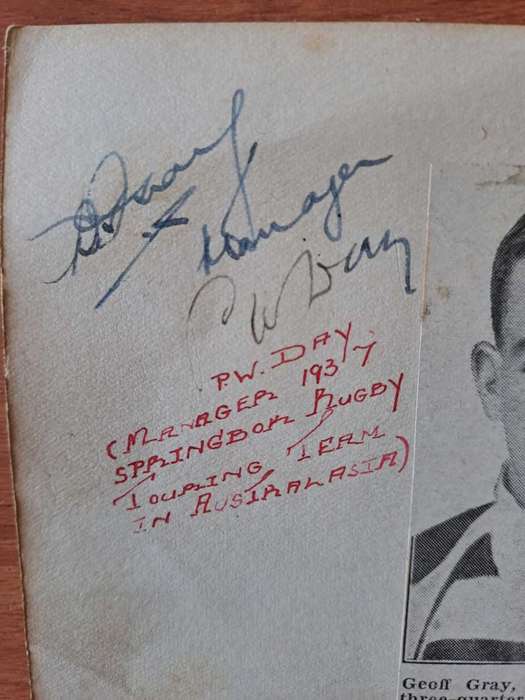 Manager
P W Day
P.W. DAY
(MANAGER 1937
SPRINGBOK RUGBY
TOURING TEAM
IN AUSTRALASIA)
Geoff Gray,
three-quarter